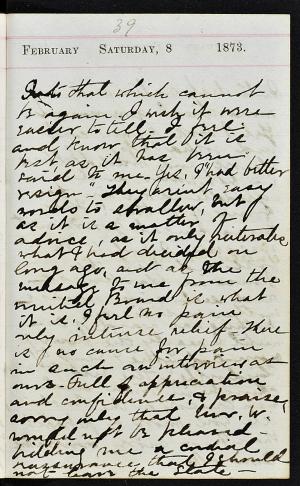 39
FEBRUARY SATURDAY, 8 1873.
that which cannot
be again. I wish it were
easier to tell. I feel
and know that it is
just as it has been
said to me. Yes, I "had better
resign." They aren't easy
words to swallow, but
as it is a matter of
advice, as it only reiterates
what I had decided on
long ago, and as the
message to me from the
Board is what
it is. I feel no pain
only intense relief. There
is no cause for pain
in such an interview as
ours. Full of appreciation
and confidence, & praise,
sorry only that Gov. W.
would not be pleased -
bidding me a cordial
reassurance that I should
not leave the State -